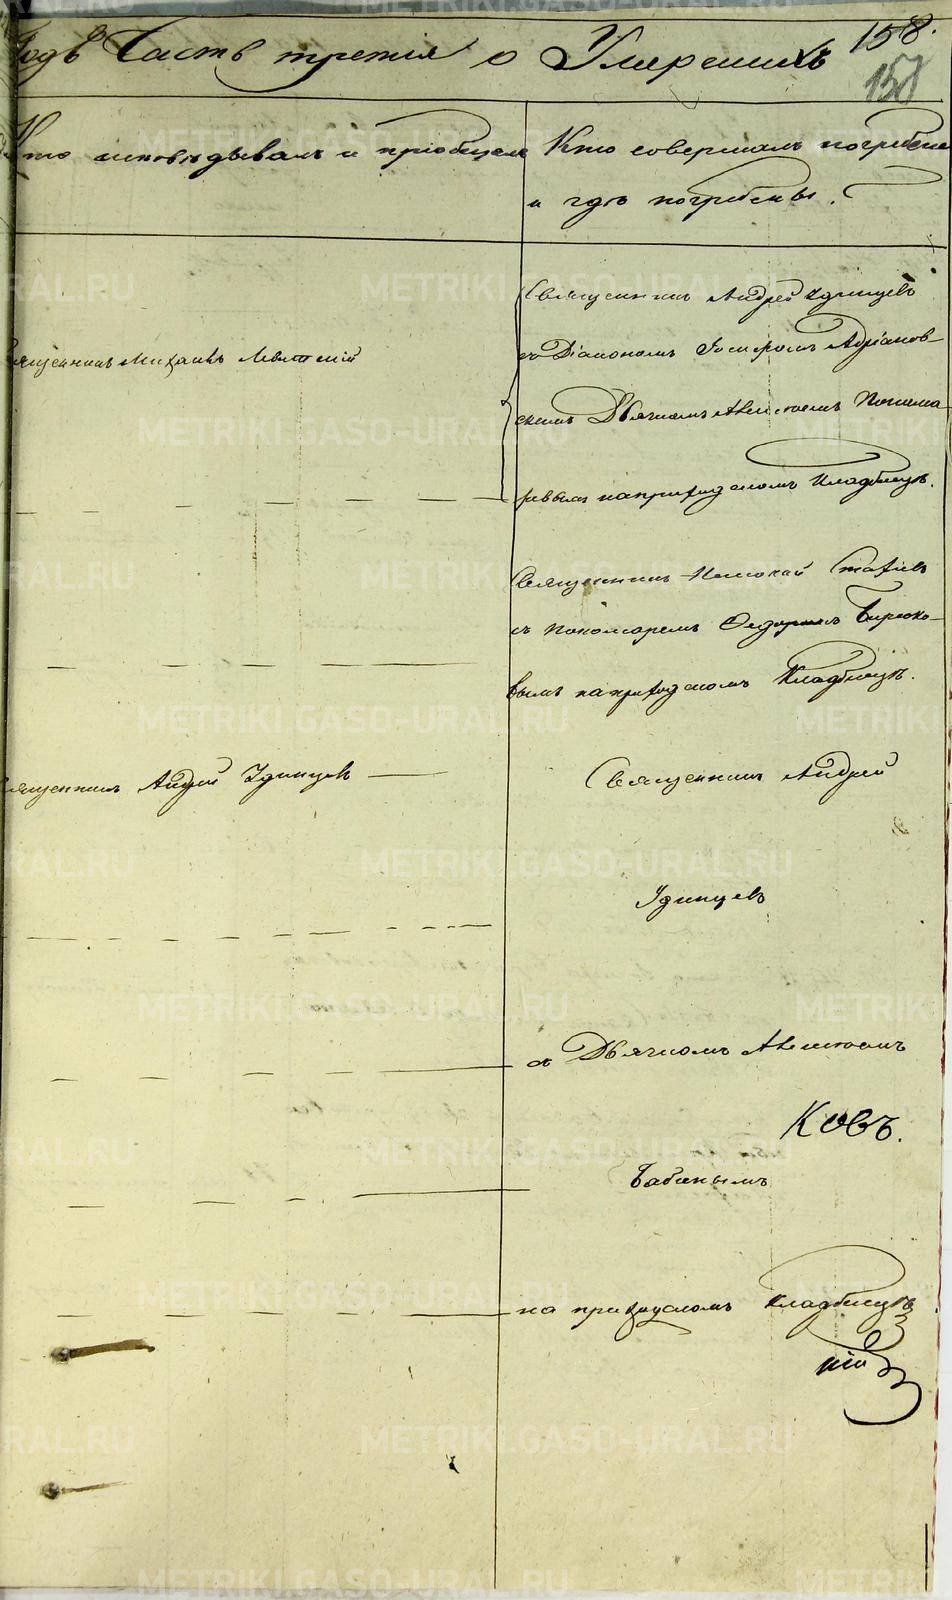 Годъ Часть третия о Умершихъ 158.
158
Кто исповѣдывалъ и приобщалъ
Кто совершалъ погребение
и гдѣ погребены.
Священникъ Михаилъ Левитскій
Священникъ Андрей Удинцевъ
съ Діакономъ Адріанов-
скимъ Дьячкомъ Алексѣемъ Понома-
ревымъ на приходскомъ кладбищѣ.
Священникъ Николай
съ пономаремъ Федоромъ Бирюко-
вымъ на приходскомъ Кладбищѣ.
Священникъ Андрей Удинцевъ
Священникъ Андрей
Удинцевъ
съ Дьячкомъ Алексѣемъ
Ковъ.
Бабинымъ
на приходскомъ кладбищѣ
METRIKI.GASO-URAL.RU